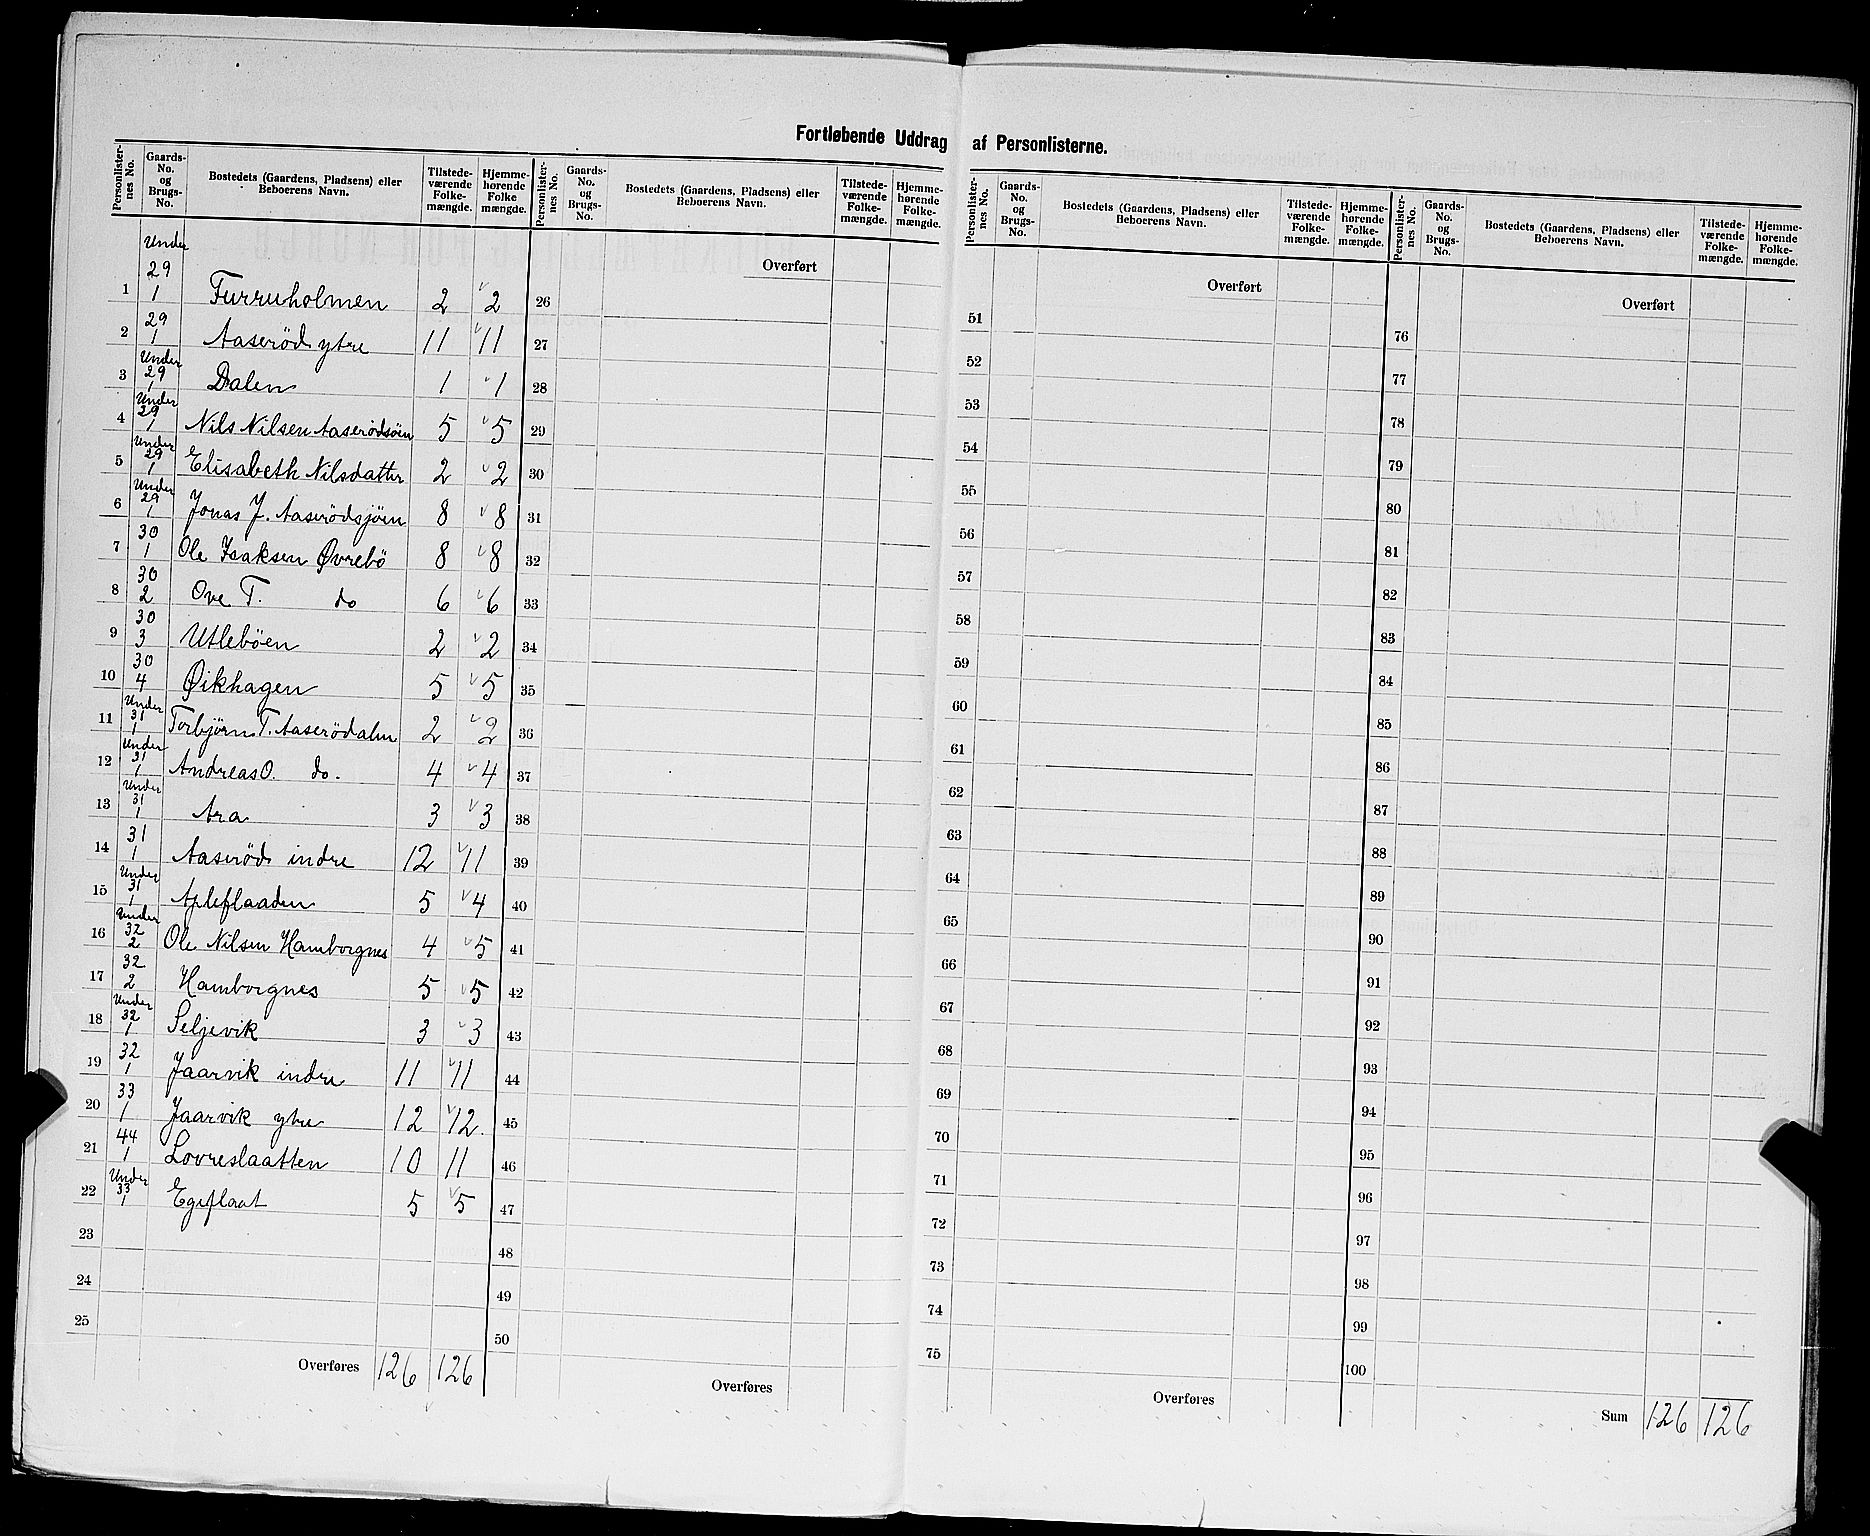 Fortløbende Uddrag af Personlisterne.
Personlisternes No. | Gaards-No. og Brugs-No. | Bostedets (Gaardens, Pladsens) eller Beboerens Navn. | Tilstedeværende Folkemængde. | Hjemmehørende Folkemængde.
1 | Under 29 1 | Furruholmen | 2 | 2
2 | 29 1 | Aaserød ytre | 11 | 11
3 | Under 29 1 | Dalen | 1 | 1
4 | Under 29 1 | Nils Nilsen Aaserødsøen | 5 | 5
5 | Under 29 1 | Elisabeth Nilsdatter | 2 | 2
6 | Under 29 1 | Jonas J. Aaserødsjøen | 8 | 8
7 | 30 1 | Ole Isaksen Øvrebö | 8 | 8
8 | 30 2 | Ove T. do | 6 | 6
9 | 30 3 | Utleböen | 2 | 2
10 | 30 4 | Øikhagen | 5 | 5
11 | Under 31 1 | Torbjørn T. Aaserödalen | 2 | 2
12 | Under 31 1 | Andreas O. do. | 4 | 4
13 | Under 31 1 | Ara | 3 | 3
14 | 31 1 | Aaseröd indre | 12 | 11
15 | Under 31 1 | Apleflaaden | 5 | 4
16 | Under 32 2 | Ole Nilsen Hamborgnes | 4 | 5
17 | 32 2 | Hamborgnes | 5 | 5
18 | Under 32 1 | Seljevik | 3 | 3
19 | 32 1 | Jaarvik indre | 11 | 11
20 | 33 1 | Jaarvik ytre | 12 | 12.
21 | 44 1 | Lovreslaatten | 10 | 11
22 | Under 33 1 | Egeflaat | 5 | 5
23
24
25
Overføres | 126 | 126
Personlisternes No. | Gaards-No. og Brugs-No. | Bostedets (Gaardens, Pladsens) eller Beboerens Navn. | Tilstedeværende Folkemængde. | Hjemmehørende Folkemængde.
Overført
26
27
28
29
30
31
32
33
34
35
36
37
38
39
40
41
42
43
44
45
46
47
48
49
50
Overføres
Personlisternes No. | Gaards-No. og Brugs-No. | Bostedets (Gaardens, Pladsens) eller Beboerens Navn. | Tilstedeværende Folkemængde. | Hjemmehørende Folkemængde.
Overført
51
52
53
54
55
56
57
58
59
60
61
62
63
64
65
66
67
68
69
70
71
72
73
74
75
Overføres
Personlisternes No. | Gaards-No. og Brugs-No. | Bostedets (Gaardens, Pladsens) eller Beboerens Navn. | Tilstedeværende Folkemængde. | Hjemmehørende Folkemængde.
Overført
76
77
78
79
80
81
82
83
84
85
86
87
88
89
90
91
92
93
94
95
96
97
98
99
100
Sum | 126 | 126